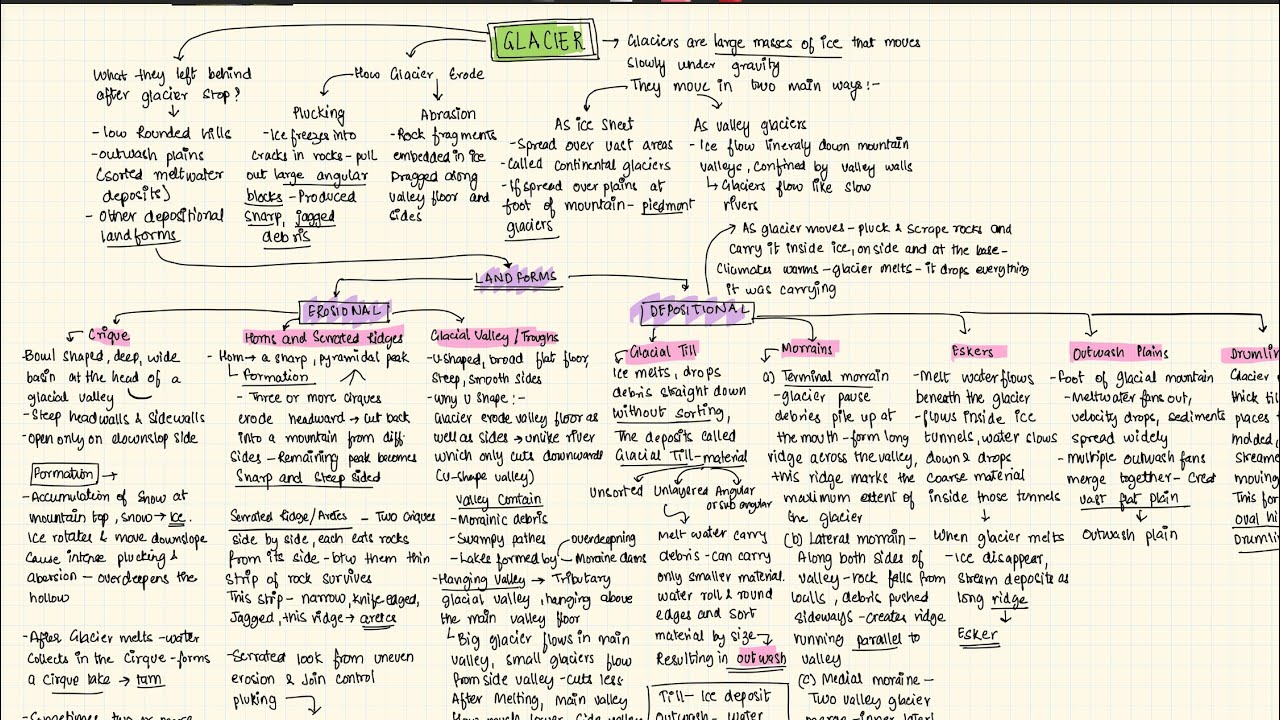 GLACIER
→ Glaciers are large masses of ice that moves
slowly under gravity
→ They move in two main ways:-
What they left behind
after glacier stop?
- low Rounded hills
- outwash plains
(sorted meltwater
deposits)
- Other depositional
landforms
How Glacier Erode
Plucking
- Ice freezes into
cracks in rocks - pull
out large angular
blocks - Produced
sharp, jagged
debris
Abrasion
- Rock fragments
embedded in ice
Dragged along
valley floor and
sides
As ice sheet
- Spread over vast areas
- Called continental glaciers
- If spread over plains at
foot of mountain - piedmont
glaciers
As valley glaciers
- Ice flow lineraly down mountain
valleys, confined by valley walls
↳ Glaciers flow like slow
rivers
→ As glacier moves - pluck & scrape rocks and
carry it inside ice, on side and at the base -
Climates warms - glacier melts - it drops everything
it was carrying
LANDFORMS
EROSIONAL
DEPOSITIONAL
Crique
Bowl shaped, deep, wide
basin at the head of a
glacial valley
- Steep headwalls & sidewalls
- open only on downslop side
Formation →
- Accumulation of snow at
mountain top, snow → Ice.
Ice rotates & move downslope
Cause intense plucking &
abarsion - overdeepens the
hollow
- After Glacier melts - water
collects in the Cirque - forms
a cirque lake → tarn
- Sometimes two or more
Horns and Serrated Ridges
- Horn → a sharp, pyramidal peak
↳ formation
- Three or more cirques
erode headward → cut back
into a mountain from diff.
sides - Remaining peak becomes
Sharp and steep sided
Serrated Ridge/Aretes - Two criques
side by side, each eats rocks
from its side - btw them thin
strip of rock survives
This strip - narrow, knife edged,
Jagged, this ridge → aretes
- Serrated look from uneven
erosion & Join control
pluking
Glacial Valley / Troughs
- U-shaped, broad flat floor,
Steep, smooth sides
- Why U shape:-
Glacier erode valley floor as
well as sides → unlike river
which only cuts downwards
(U-shape valley)
Valley Contain
- Morainic debris
- Swampy pathes
- Lakes formed by
overdeepning
Moraine dams
- Hanging Valley → Tributary
glacial valley, hanging above
the main valley floor
↳ Big glacier flows in main
valley, small glaciers flow
from side valley - cuts less
After Melting, main valley
Glacial Till
Ice melts, drops
debris straight down
without sorting,
The deposits called
Glacial Till - material
Unsorted Unlayered Angular
or sub angular
melt water carry
debris - can carry
only smaller material.
water roll & round
edges and sort
material by size
Resulting in outwash
Till - Ice deposit
Outwash - water
Morrains
a) Terminal morrain
- glacier pause
debries pile up at
the mouth - form long
ridge across the valley,
this ridge marks the
maximum extent of
the glacier
(b) Lateral morrain -
Along both sides of
valley - rock falls from
walls, debris pushed
sideways - creates ridge
running parallel to
valley
(c) Medial moraine -
Two valley glacier
Eskers
- Melt water flows
beneath the glacier
- flows inside ice
tunnels, water slows
down & drops
coarse material
inside those tunnels
When glacier melts
- Ice disappear,
stream deposits as
long ridge
Esker
Outwash Plains
- foot of glacial mountain
- Meltwater fans out,
velocity drops, sediments
spread widely
- multiple outwash fans
merge together - Creat
vast flat plain
Outwash plain
Drumlin
Glacier
thick til
places
molded
streame
moving
This for
oval hi
Drumlin